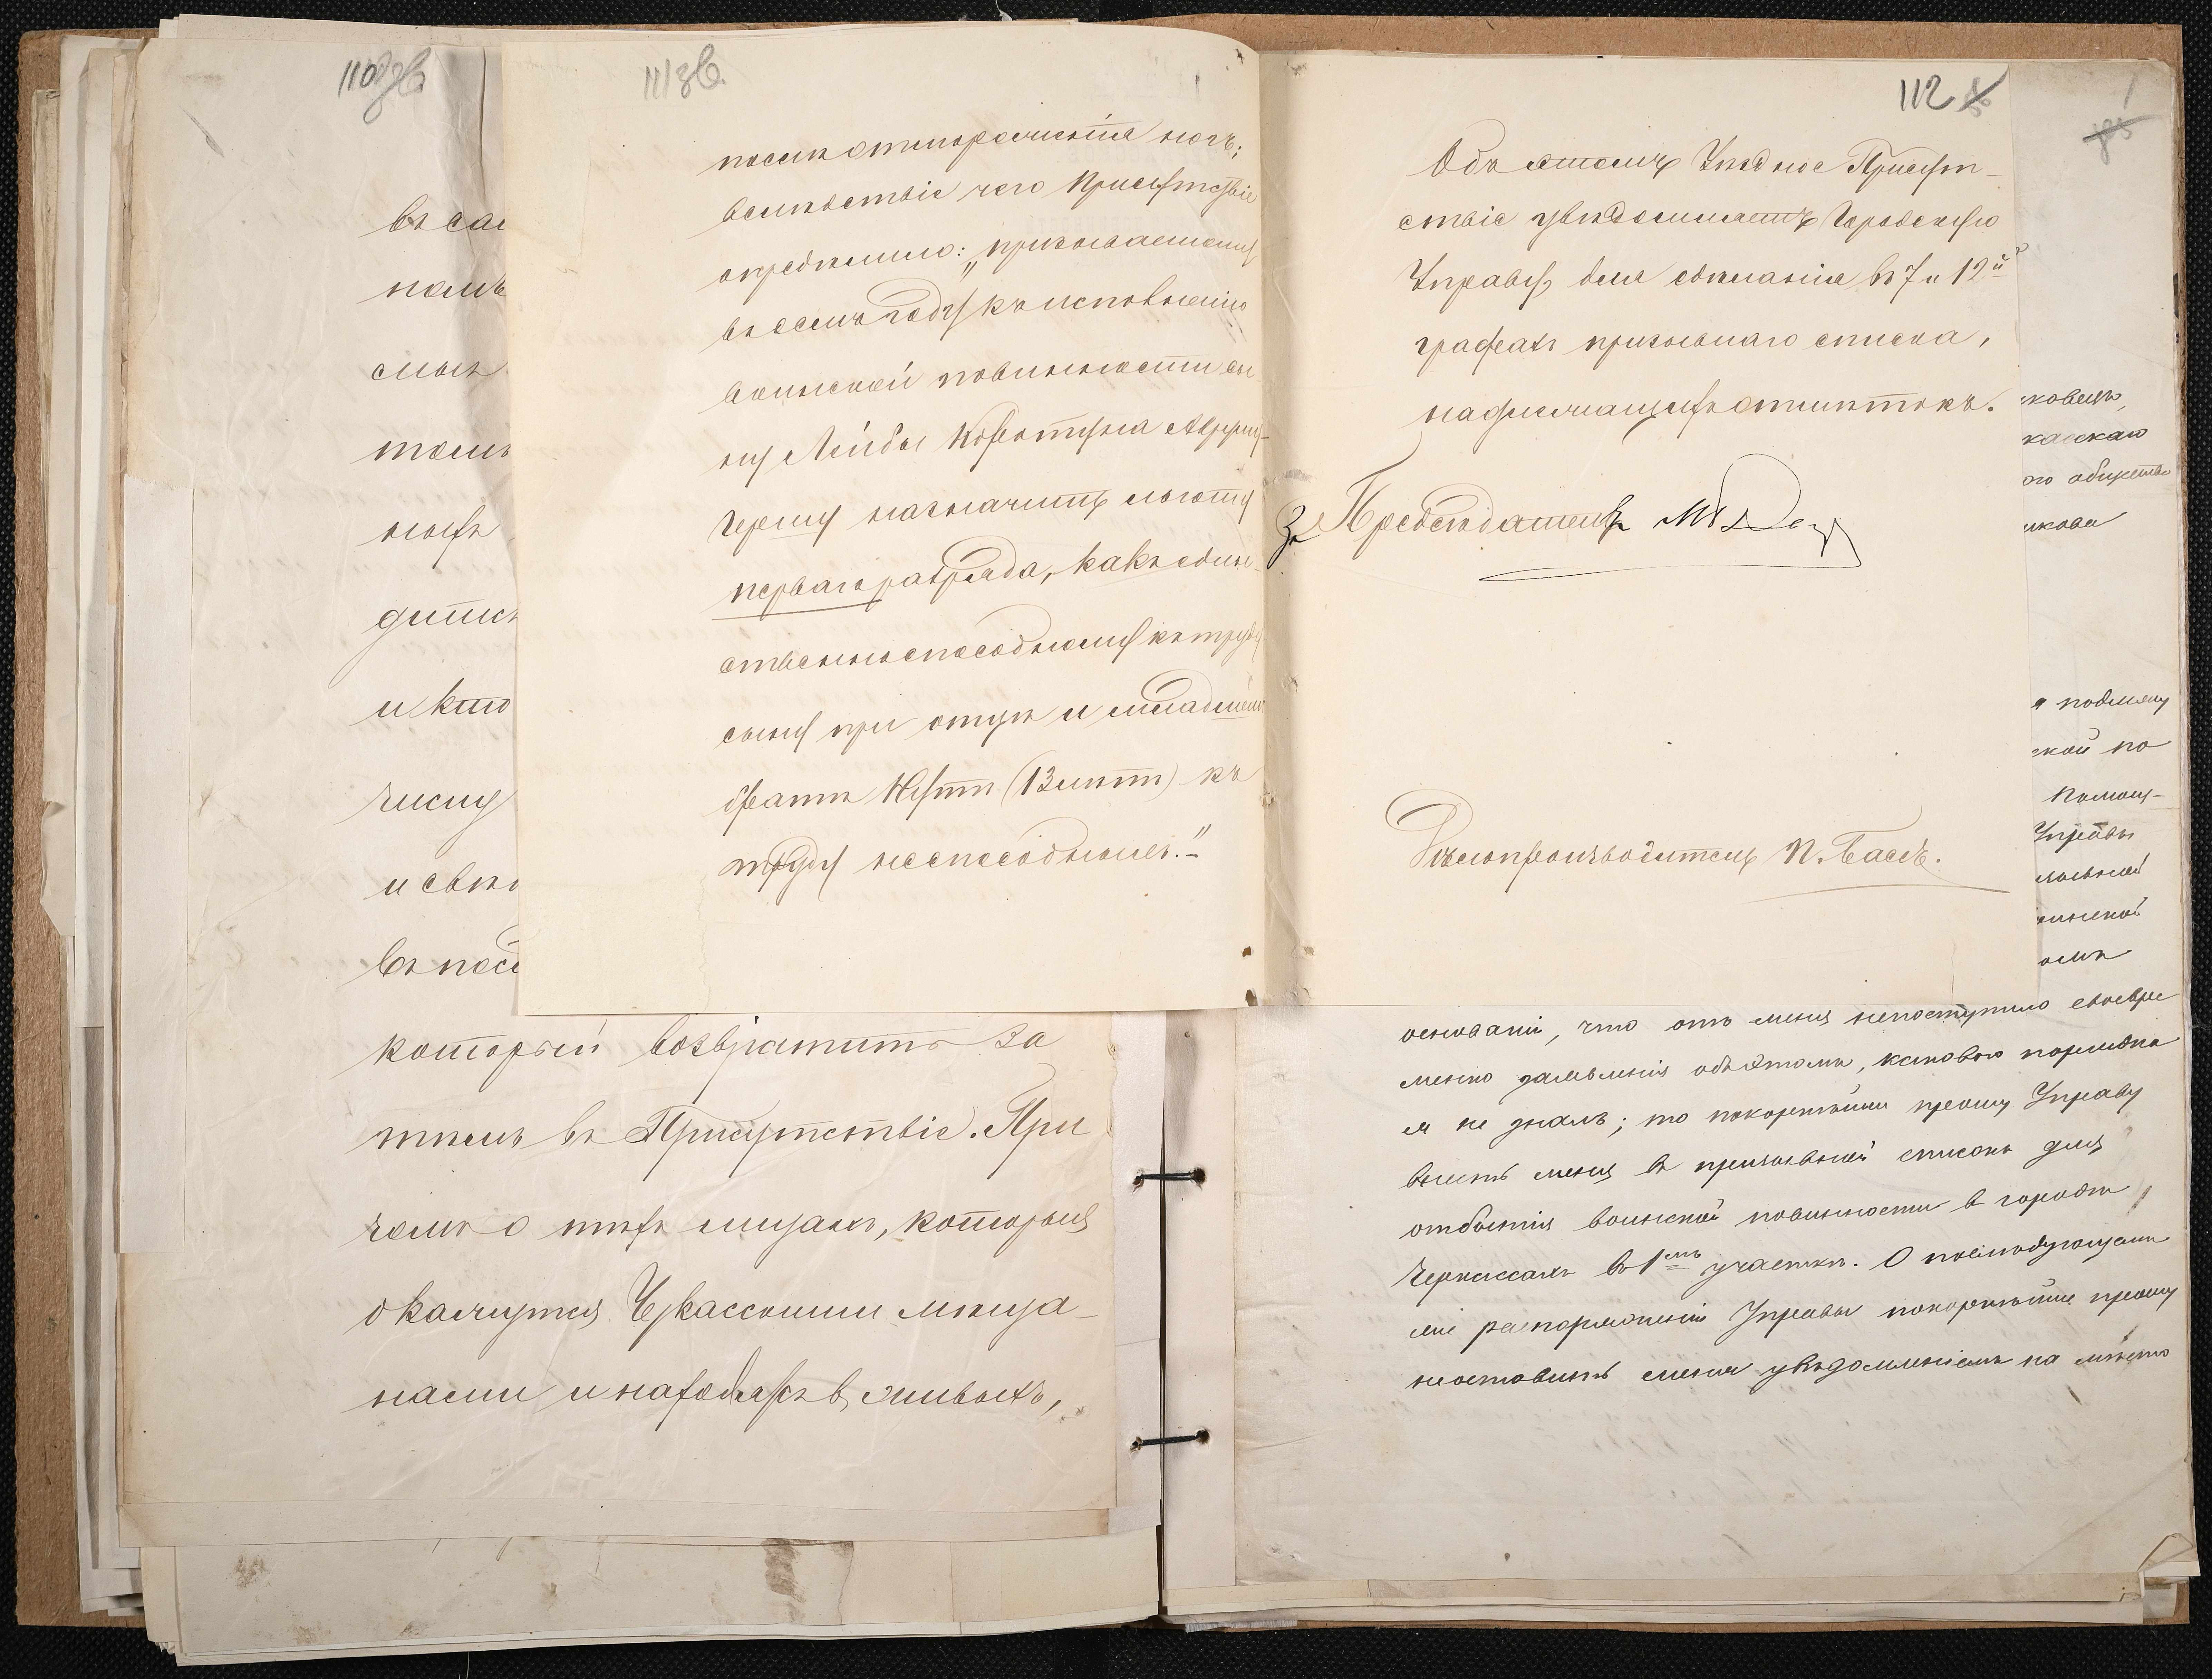 110 зв.
въ сас
намъ
смыя
томъ
ныхъ
дитсь
и кто
числу
и свѣ
въ пост
который возвратить за
тѣмъ въ Присутствіе. При
чемъ о тѣхъ лицахъ, которыя
окажутся Черкасскими мѣща-
нами и находятся въ живыхъ,
111 зв.
послѣ отмороженія ногъ;
вслѣдствіе чего Присутствіе
опредѣлило: „призываемому
въ семъ году къ исполненію
воинской повинности сы-
ну Лейбы Коротуна
назначить льготу
перваго разряда, какъ един-
ственно способному къ труду
сыну при отцѣ и младшемъ
братѣ (13 лѣтъ) къ
труду неспособныхъ."
112
Объ этомъ Уѣздное Присут-
ствіе увѣдомляетъ Городскую
Управу для сдѣланія въ 7 и 12й
графахъ призывнаго списка,
надлежащихъ отмѣтокъ.
За Предсѣдателя
Дѣлопроизводитель П. Басъ.
ковецъ,
каскаго
ого общества
икова
я подмену
ской по
Помощ-
Управы
зывной
инской
омъ
основаніи, что отъ меня непоступило своевре
менно заявленія объ этомъ, каковаго порядка
я не зналъ; то покорнѣйше прошу Управу
внесть меня въ призывной списокъ для
отбытія воинской повинности въ городѣ
Черкассахъ въ 1мъ участкѣ. О послѣдующемъ
распоряженіи Управы покорнѣйше прошу
неоставить меня увѣдомленіемъ на мѣсто